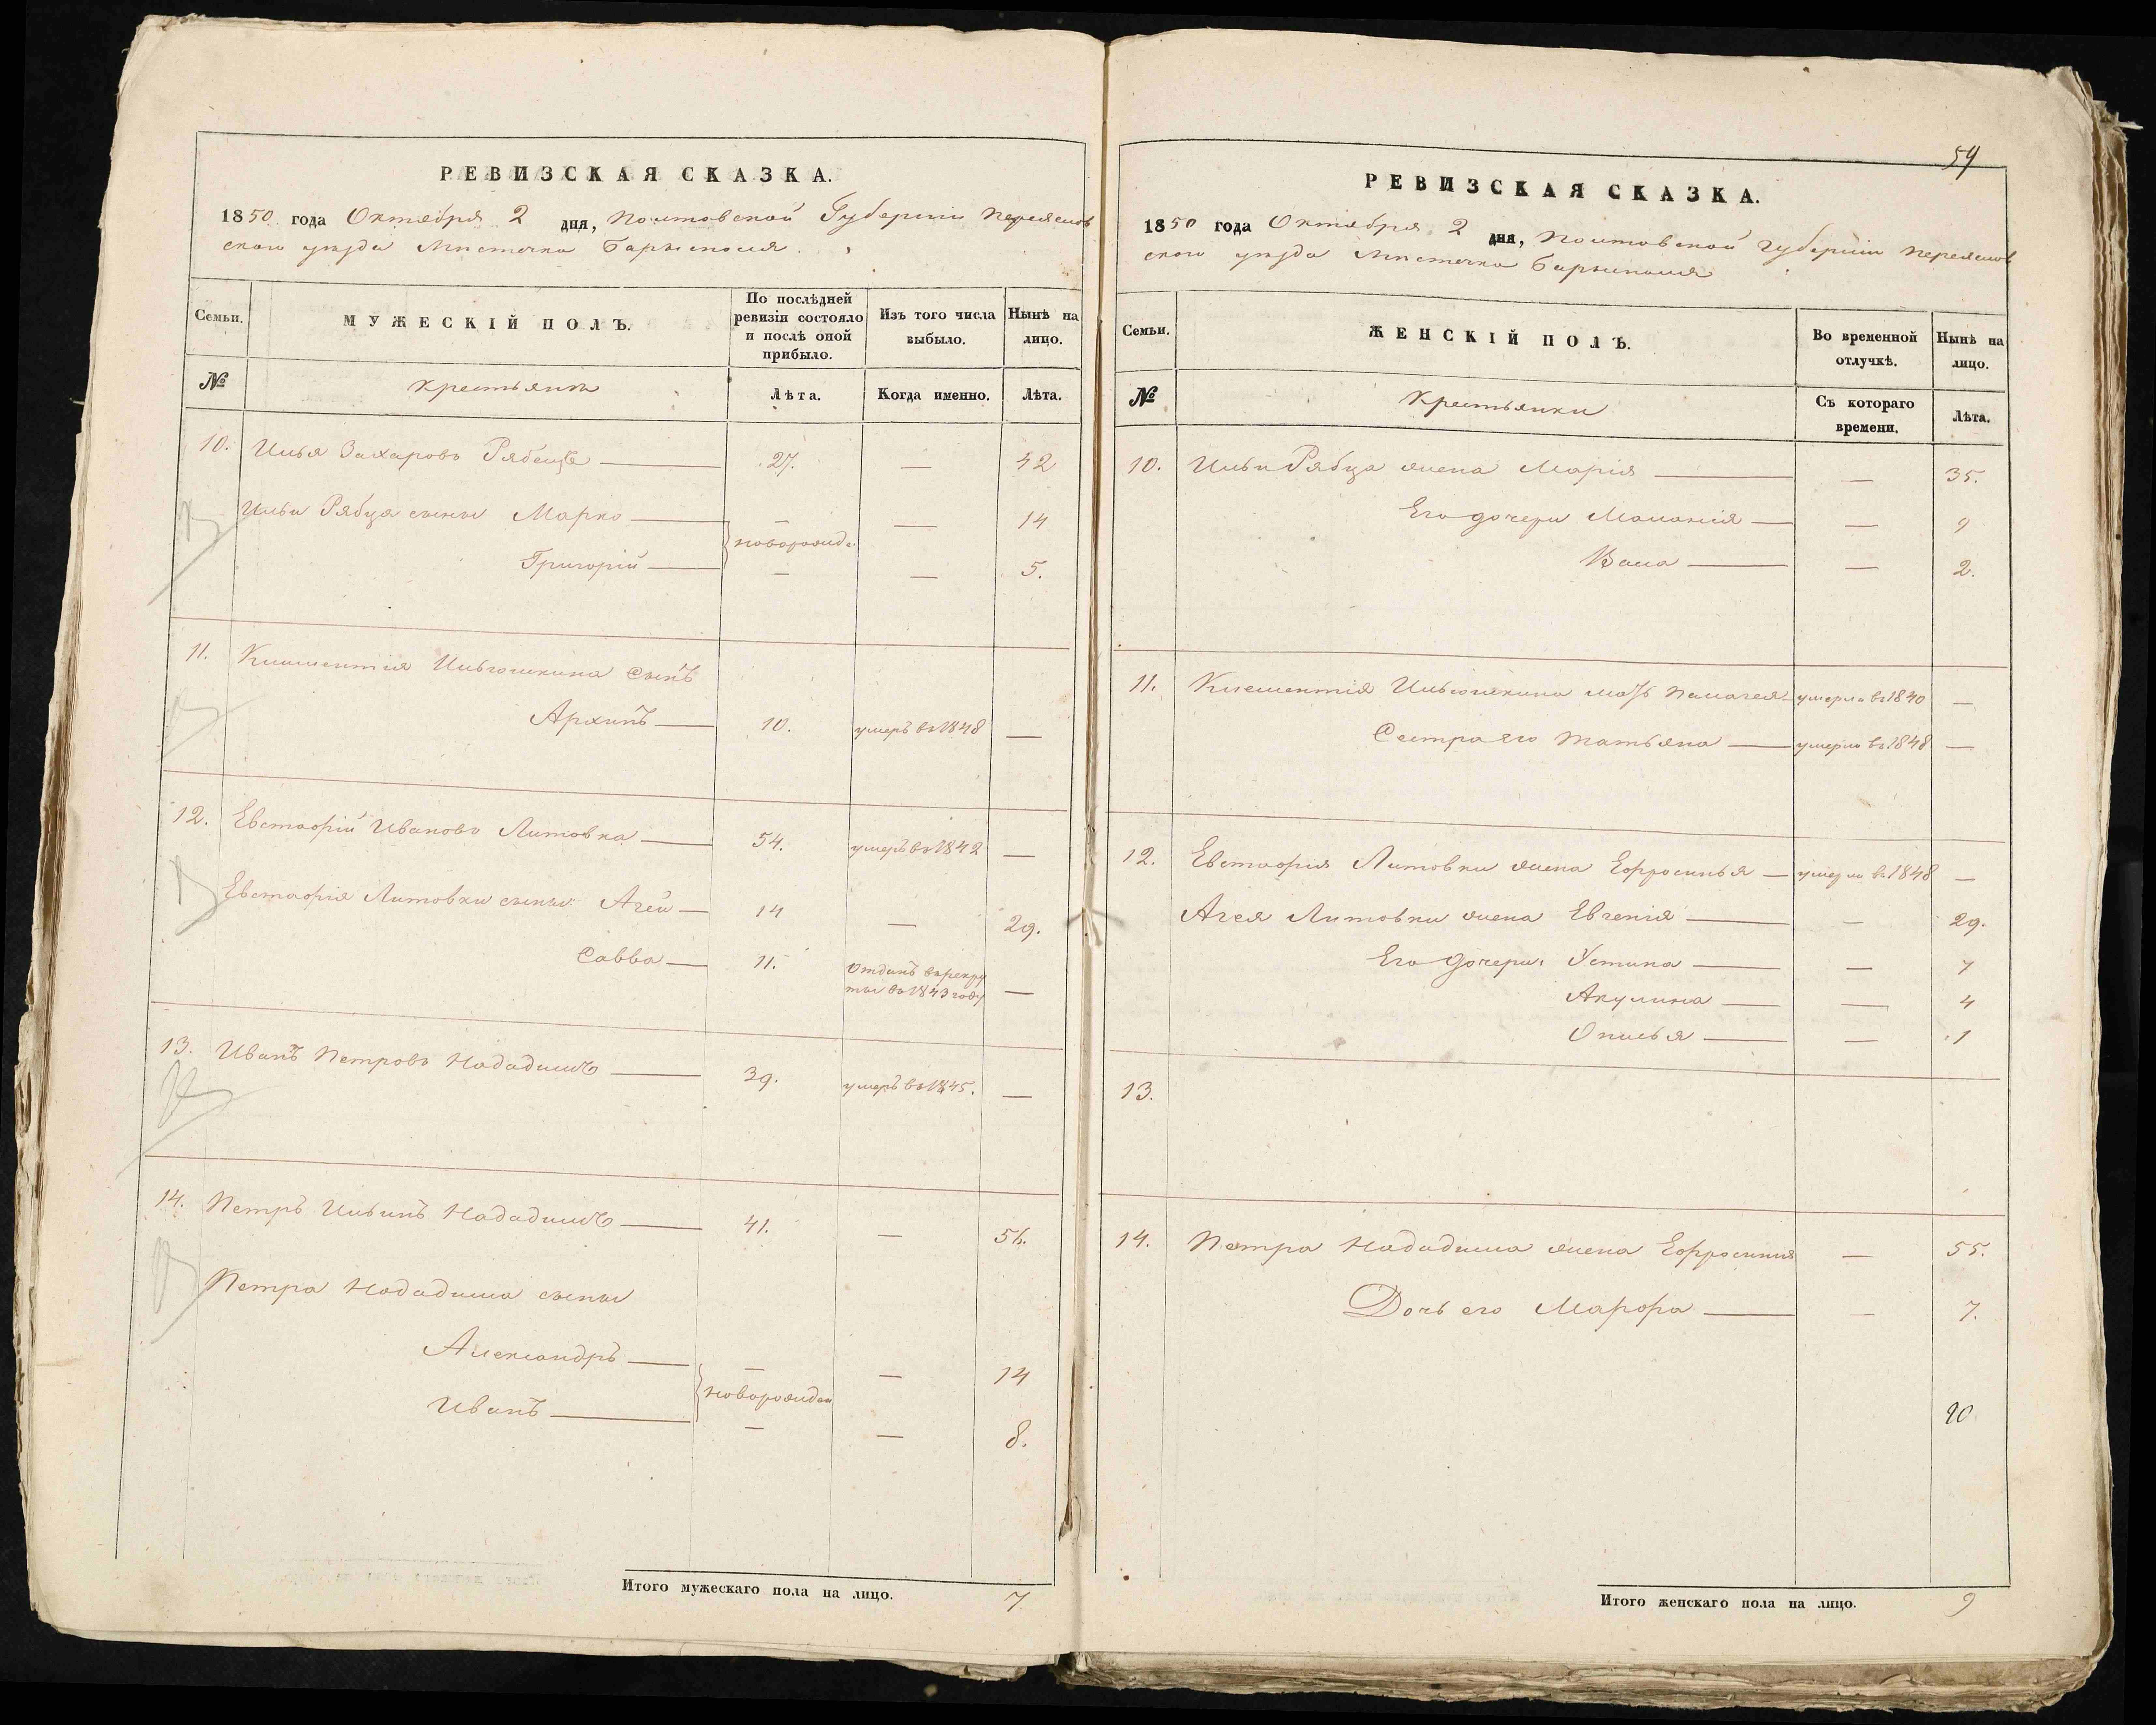 РЕВИЗСКАЯ СКАЗКА.
1850 года Октября 2 дня, Полтавской Губерніи Переяслов
скаго уѣзда Мѣстечка Барысполя.
Семьи.
МУЖЕСКІЙ ПОЛЪ.
По послѣдней ревизіи состояло и послѣ оной прибыло.
Изъ того числа выбыло.
Нынѣ на лицо.
№ Крестьянъ Лѣта. Когда именно. Лѣта.
10. Илья Захаровъ Рябецъ — 27. — 42
Ильи Рябца сыны Марко — — — 14
новорожд.
Григорій — — — 5.
11. Климентія Ильюшкина Сынъ
Архипъ — 10. умеръ въ 1848 —
12. Евстафій Ивановъ Литовка — 54. умеръ въ 1842 —
Евстафія Литовки сыны: Агей — 14 — 29.
Савва — 11. Отданъ въ рекру
ты въ 1843 году —
13. Иванъ Петровъ — 39. умеръ въ 1845. —
14. Петръ Ильинъ — 41. — 56.
Петра сыны
Александръ — — — 14
новорожден
Иванъ — — — 8.
Итого мужескаго пола на лицо. 7
54
РЕВИЗСКАЯ СКАЗКА.
1850 года Октября 2 дня, Полтавской Губерніи Переяслов
скаго уѣзда Мѣстечка Барысполя
Семьи.
ЖЕНСКІЙ ПОЛЪ.
Во временной отлучкѣ.
Нынѣ на лицо.
№ Крестьянки Съ котораго времени. Лѣта.
10. Ильи Рябца жена Марія — — 35.
Его дочери Маланія — — 9
— — 2.
11. Климентія Ильюшкина мать Палагея умерла въ 1840 —
Сестра его Татьяна — умерла въ 1848 —
12. Евстафія Литовки жена Ефросинья — умерла въ 1848 —
Агея Литовки жена Евгенія — — 29.
Его дочери: Устина — — 7
Акулина — — 4
— — 1
13.
14. Петра жена Ефросинія — 55.
Дочь его Марфа — — 7.
Итого женскаго пола на лицо. 9